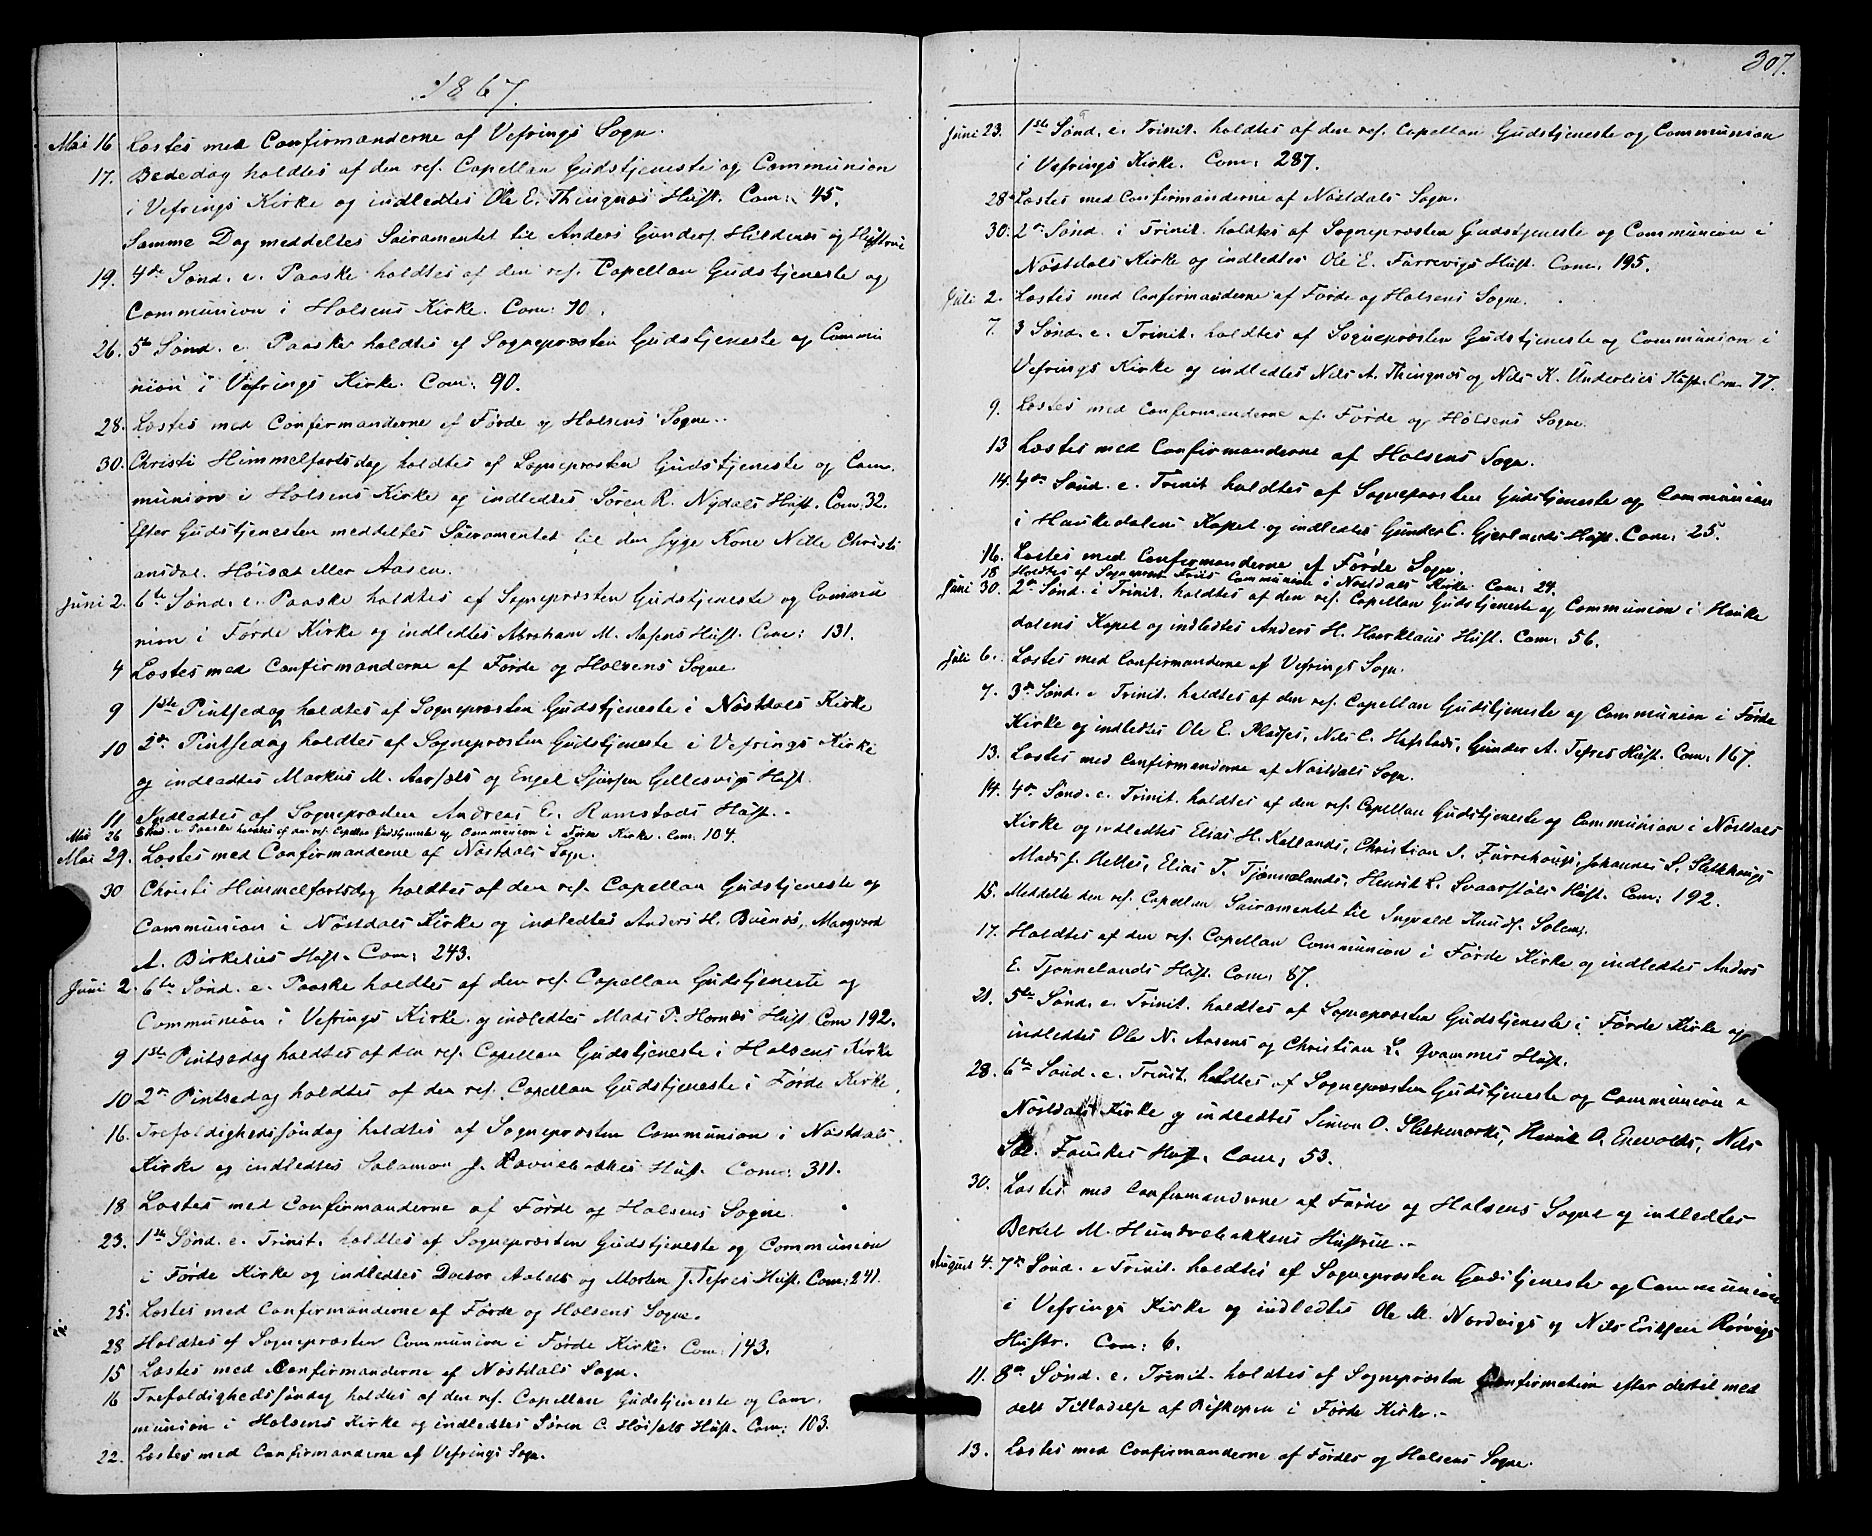 1867.
Mai 16 Læstes med Confirmanderne af Vefrings Sogn.
17. Bededag holdtes af den res. Capellan Gudstjeneste og Communion
i Vefrings Kirke og indledtes Ole E. Thingnæs Hust. Com: 45.
Samme Dag meddeltes Sacramentet til Anders Gunders. Hildenæs og Hustrue
19. 4de Sønd. e. Paaske holdtes af den res. Capellan Gudstjeneste og
Communion i Holsens Kirke. Com: 70.
26. 5te Sønd. e. Paaske holdtes af Sognepræsten Gudstjeneste og Commu
nion i Vefrings Kirke. Com: 90.
28. Læstes med Confirmanderne af Førde og Holsens Sogne.
30. Christi Himmelfartsdag holdtes af Sognepræsten Gudstjeneste og Com.
munion i Holsens Kirke og indledtes Søren R. Nydals Hust. Com: 32.
Efter Gudstjenesten meddeltes Sacramentet til den syge Kone Nille Christi
ansdat. Høisæt eller Aasen.
Juni 2. 6te Sønd. e. Paaske holdtes af Sognepræsten Gudstjeneste og Commu
nion i Førde Kirke og indledtes Abraham M. Aasens Hust. Com: 131.
4 Læstes med Confirmanderne af Førde og Holsens Sogne
9 1ste Pintsedag holdtes af Sognepræsten Gudstjeneste i Nøstdals Kirke
10 2den Pintsedag holdtes af Sognepræsten Gudstjeneste i Vefrings Kirke
og indledtes Markus M. Aarsæts og Engel Sjursen Gellesvigs Hust.
11 Indledtes af Sognepræsten Andreas E. Ramstads Hust.
Mai 26 5 Sønd. e. Paaske holdtes af den res. Capellan Gudstjeneste og Communion i Førde Kirke. Com: 104.
Mai 29. Læstes med Confirmanderne af Nøstdals Sogn.
30 Christi Himmelfartsdag holdtes af den res. Capellan Gudstjeneste og
Communion i Nøstdals Kirke og indledtes Anders H. Buenæs, Marqvard
A. Birkelies Hust. Com: 243.
Juni 2. 6te Sønd. e. Paaske holdtes af den res. Capellan Gudstjeneste og
Communion i Vefrings Kirke og indledtes Mads P. Hornæs Hust. Com 192.
9 1ste Pintsedag holdtes af den res. Capellan Gudstjeneste i Holsens Kirke
10 2den Pintsedag holdtes af den res. Capellan Gudstjeneste i Førde Kirke.
16. Trefoldighedssøndag holdtes af Sognepræsten Communion i Nøstdals
Kirke og indledtes Salamon J. Ravnebakkes Hust. Com: 311.
18 Læstes med Confirmanderne af Førde og Holsens Sogne.
23. 1ste Sønd. e. Trinit. holdtes af Sognepræsten Gudstjeneste og Communion
i Førde Kirke og indledtes Doctor og Morten J. Tefres Hust. Com: 241.
25. Læstes med Confirmanderne af Førde og Holsens Sogne.
28 Holdtes af Sognepræsten Communion i Førde Kirke. Com: 143.
15 Læstes med Confirmanderne af Nøstdals Sogn.
16 Trefoldighedssøndag holdtes af den res. Capellan Gudstjeneste og Com.
munion i Holsens Kirke og indledtes Søren C. Høisæts Hust. Com: 103.
22. Læstes med Confirmanderne af Vefrings Sogn.
307.
Juni 23. 1ste Sønd. e. Trinit. holdtes af den res. Capellan Gudstjeneste og Communion
i Vefrings Kirke. Com: 287.
28 Læstes med Confirmanderne af Nøstdals Sogn.
30. 2den Sønd. i Trinit. holdtes af Sognepræsten Gudstjeneste og Communion i
Nøstdals Kirke og indledtes Ole E. Furrevigs Hust. Com: 195.
Juli 2. Læstes med Confirmanderne af Førde og Holsens Sogne.
7. 3 Sønd. e. Trinit. holdtes af Sognepræsten Gudstjeneste og Communion i
Vefrings Kirke og indledtes Nils A. Thingnæs og Nils K. Underlies Hust. Com. 77.
9. Læstes med Confirmanderne af Førde og Holsens Sogne.
13 Læstes med Confirmanderne af Holsens Sogn.
14. 4de Sønd. e. Trinit holdtes af Sognepræsten Gudstjeneste og Communion
i Haukedalens Kapel og indledtes Gunder C. Gjerlands Hust. Com: 25.
16. Læstes med Confirmanderne af Førde Sogn.
18 Holdtes af Sognepræst Friis Communion i Nøstdals Kirke Com: 24.
Juni 30. 2den Sønd. i Trinit. holdtes af den res. Capellan Gudstjeneste og Communion i Hauke
dalens Kapel og indledtes Anders H. Hust. Com: 56.
Juli 6. Læstes med Confirmanderne af Vefrings Sogn.
7. 3de Sønd. e Trinit. holdtes af den res. Capellan Gudstjeneste og Communion i Førde
Kirke og indledtes Ole E. Pladses, Nils C. Hafstads, Gunder A. Tefres Hust. Com: 167.
13. Læstes med Confirmanderne af Nøstdals Sogn.
14. 4de Sønd. e. Trinit. holdtes af den res. Capellan Gudstjeneste og Communion i Nøstdals
Kirke og indledtes Elias H. Kallands, Christian I. Furrehougs, Johannes S.
Mads J. Helles, Elias T. Tjønnelands, Henrik L. Svaarstøls Hust. Com: 192.
15. Meddelte den res. Capellan Sacramentet til Ingvald Knuds. Solem.
17. Holdtes af den res. Capellan Communion i Førde Kirke og indledtes Anders
E. Tjønnelands Hust. Com: 87.
21. 5te Sønd. e. Trinit. holdtes af Sognepræsten Gudstjeneste i Førde Kirke og
indledtes Ole N. Aasens og Christian L. Qvammes Hust.
28. 6te Sønd. e. Trinit. holdtes af Sognepræsten Gudstjeneste og Communion i
Nøstdals Kirke og indledtes Simon O. Henrik O. Enevolds, Nils
Fauskes Hust. Com: 53.
30. Læstes med Confirmanderne af Førde og Holsens Sogne og indledtes
Bertel M. Hundvebakkens Hustrue.
August 4. 7de Sønd. e Trinit. holdtes af Sognepræsten Gudstjeneste og Communion
i Vefrings Kirke og indledtes Ole M. Nordvigs og Nils Eriksen Rørvigs
Hustr. Com: 6.
11. 8de Sønd. e. Trinit. holdtes af Sognepræsten Confirmation efter dertil med
delt Tilladelse af Biskopen i Førde Kirke.
13. Læstes med Confirmanderne af Førdes og Holsens Sogne.